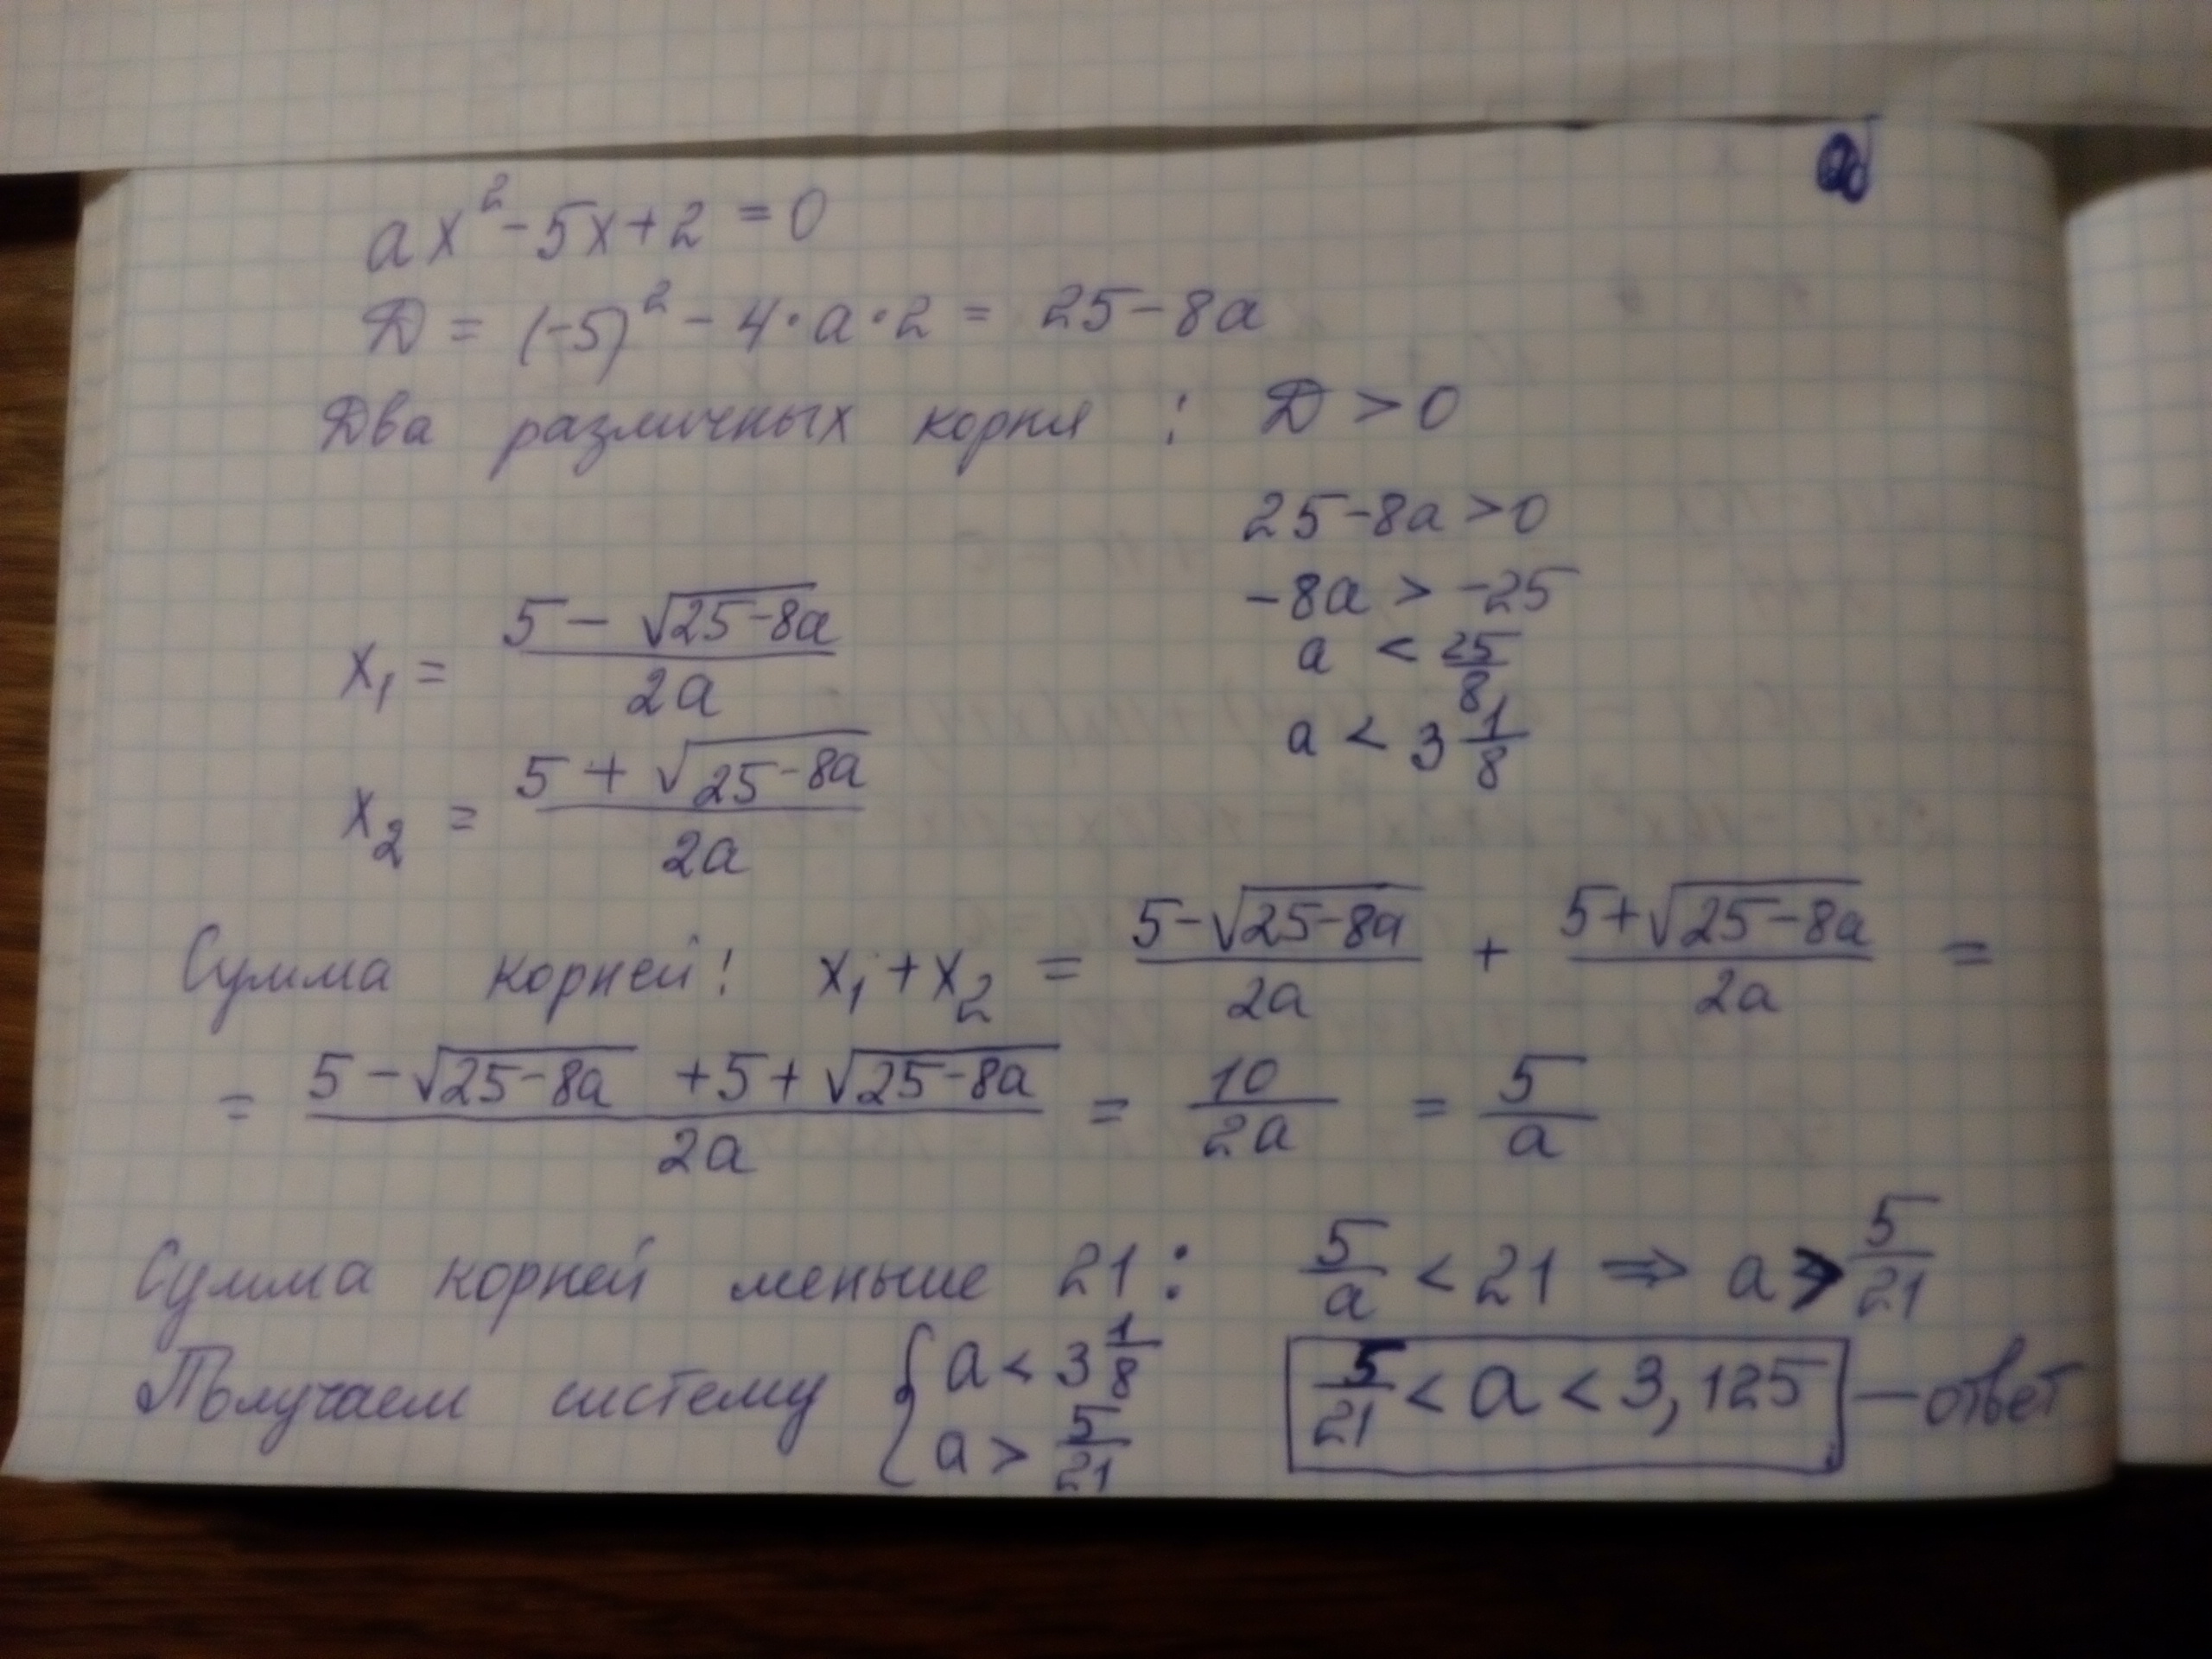 ax² - 5x + 2 = 0
D = (-5)² - 4·a·2 = 25 - 8a
Два различных корня : D > 0
25 - 8a > 0
-8a > -25
a < 25/8
a < 3 1/8
x₁ = (5 - √(25-8a))/2a
x₂ = (5 + √(25-8a))/2a
Сумма корней: x₁ + x₂ = (5-√(25-8a))/2a + (5+√(25-8a))/2a =
= (5 - √(25-8a) + 5 + √(25-8a))/2a = 10/2a = 5/a
Сумма корней меньше 21: 5/a < 21 ⇒ a > 5/21
Получаем систему { a < 3 1/8
a > 5/21
5/21 < a < 3,125 — ответ